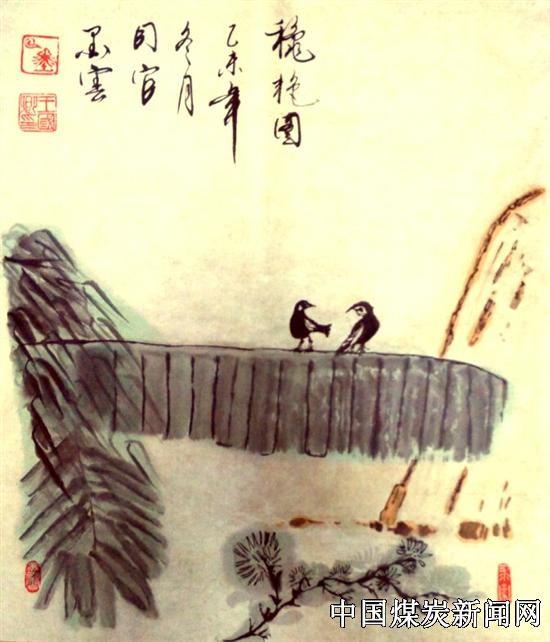 艳图
乙未年
冬月
同官
墨雲
中国煤炭新闻网